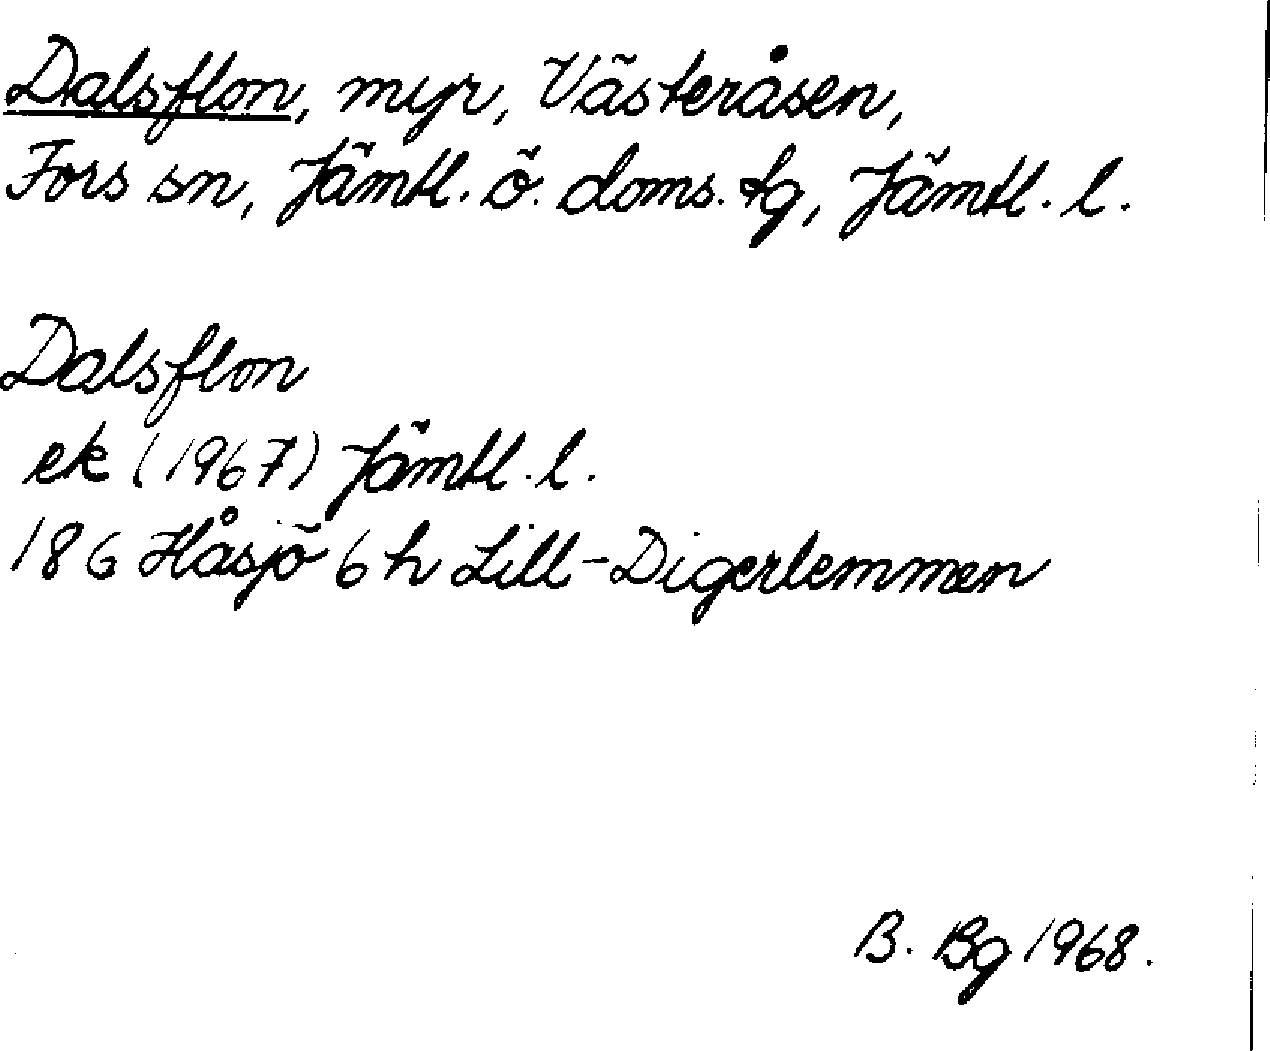 Dalsflon, myr, Västeråsen,
Fors sn, Jämtl. ö. doms. tg, Jämtl. l.
Dalsflon
ek (1967) Jämtl. l.
18G Håsjö 6h Lill-Digerlemmen
B. Bg 1968.